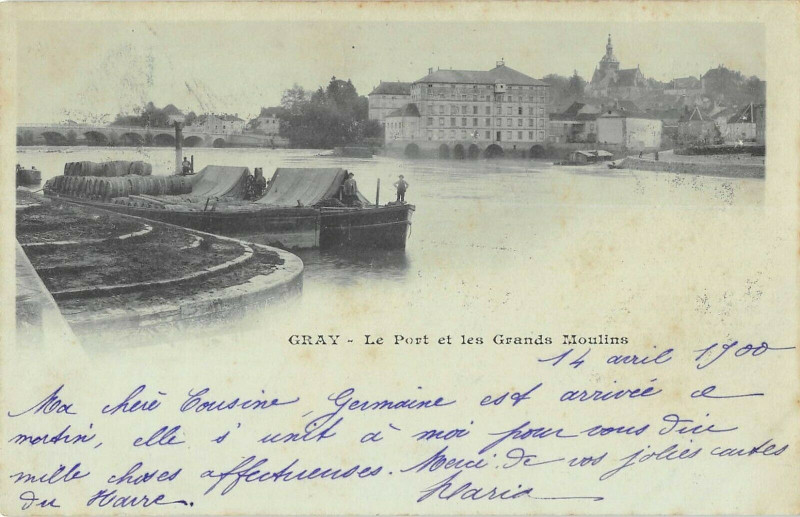 GRAY - Le Port et les Grands Moulins
14 avril 1900
Ma chère Cousine, Germaine est arrivée ce
matin, elle s'unit à moi pour vous dire
mille choses affectueuses. Merci de vos jolies cartes
du Havre. Marie